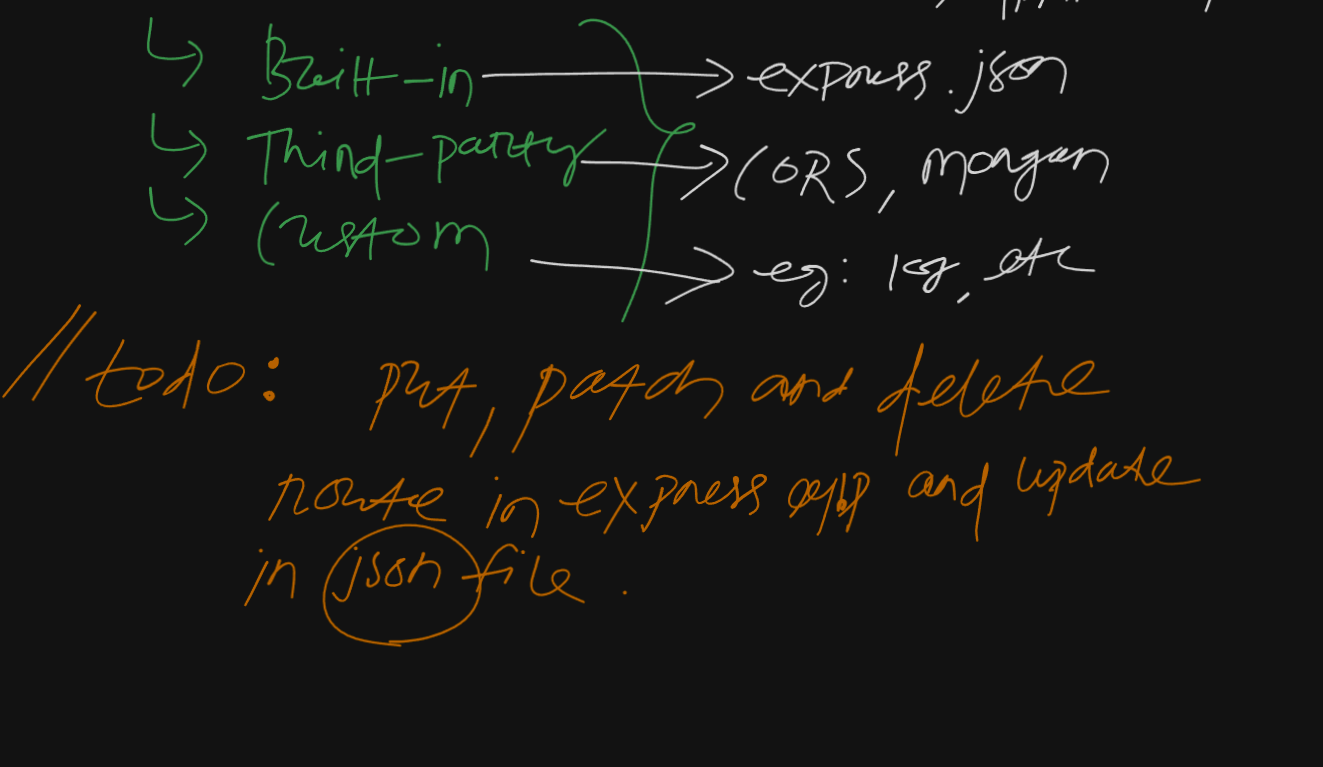 Built-in → express.json
Third-party → CORS, morgan
Custom → eg: log, etc
//todo: put, patch and delete
route in express app and update
in json file.